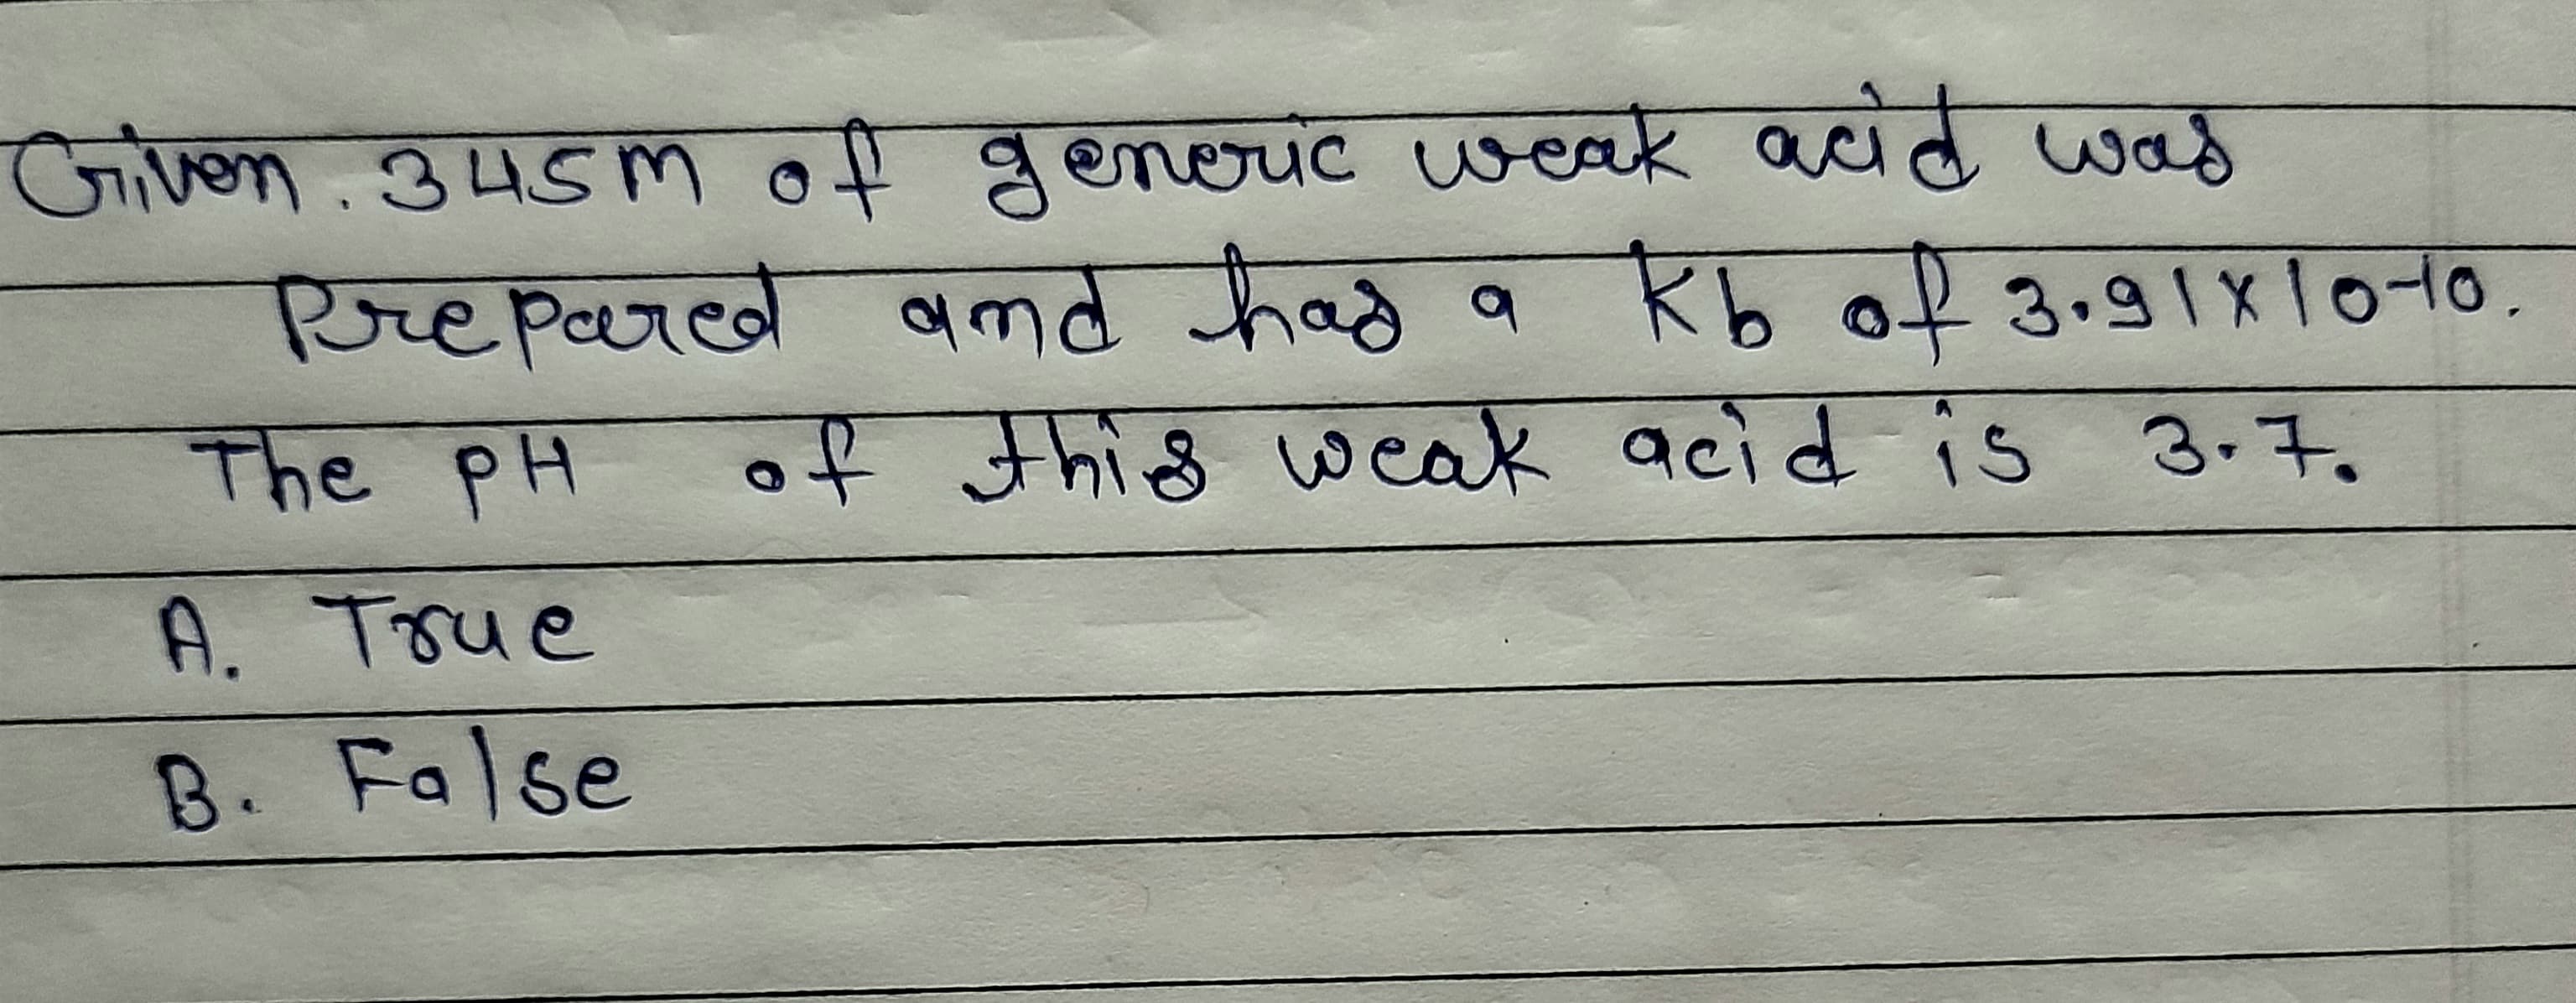 Given .345m of generic weak acid was
Prepared and has a Kb of 3.91x10-10.
The pH of this weak acid is 3.7.
A. True
B. False